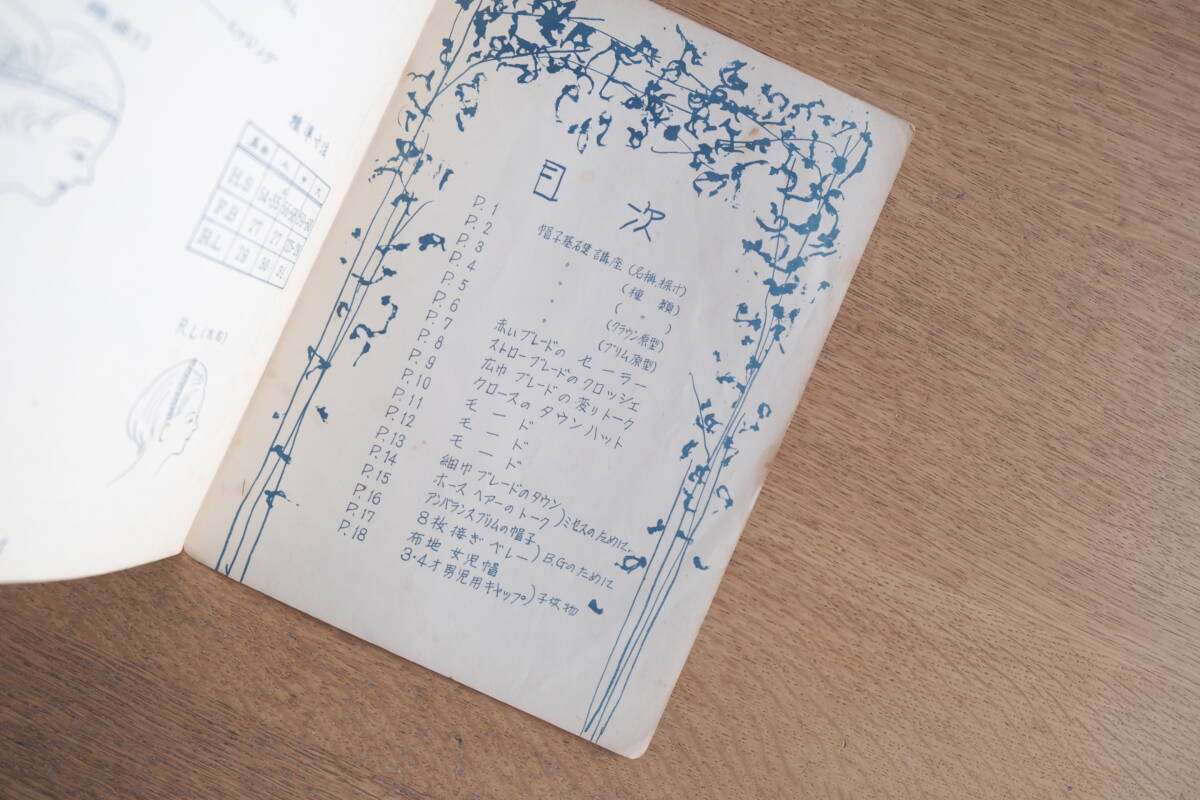 標準寸法
H.S
F.B 27 27
RL 29 30 31
R.L(左右)
目次
P.1 帽子基礎講座(名称、採寸)
P.2 〃 (種類)
P.3 〃 ( 〃 )
P.4 〃 (クラウン原型)
P.5 〃 (ブリム原型)
P.6 赤いブレードの セーラー
P.7 ストローブレードのクロッシェ
P.8 広巾 ブレードの変りトーク
P.9 クロースの タウンハット
P.10 モード
P.11 モード
P.12 モード
P.13 細巾 ブレードのタウン
P.14 ホースヘアーのトーク)ミセスのために、
P.15 アンバランスブリムの帽子
P.16 8枚接ぎ ベレー)B.Gのために
P.17 布地 女児帽
P.18 3・4才男児用キャップ)子供物